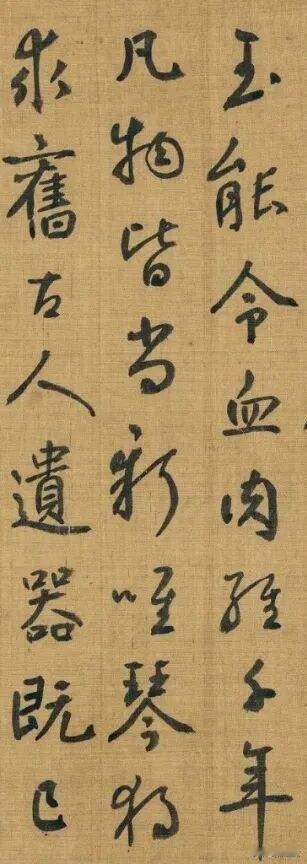 玉能令血肉經千年
凡物皆尚新唯琴獨
求舊古人遺器既已